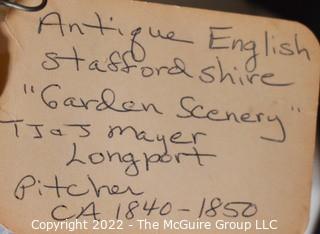 Antique English
Staffordshire
"Garden Scenery"
TJ&J Mayer
Longport
Pitcher
CA 1840-1850
Copyright 2022 - The McGuire Group LLC